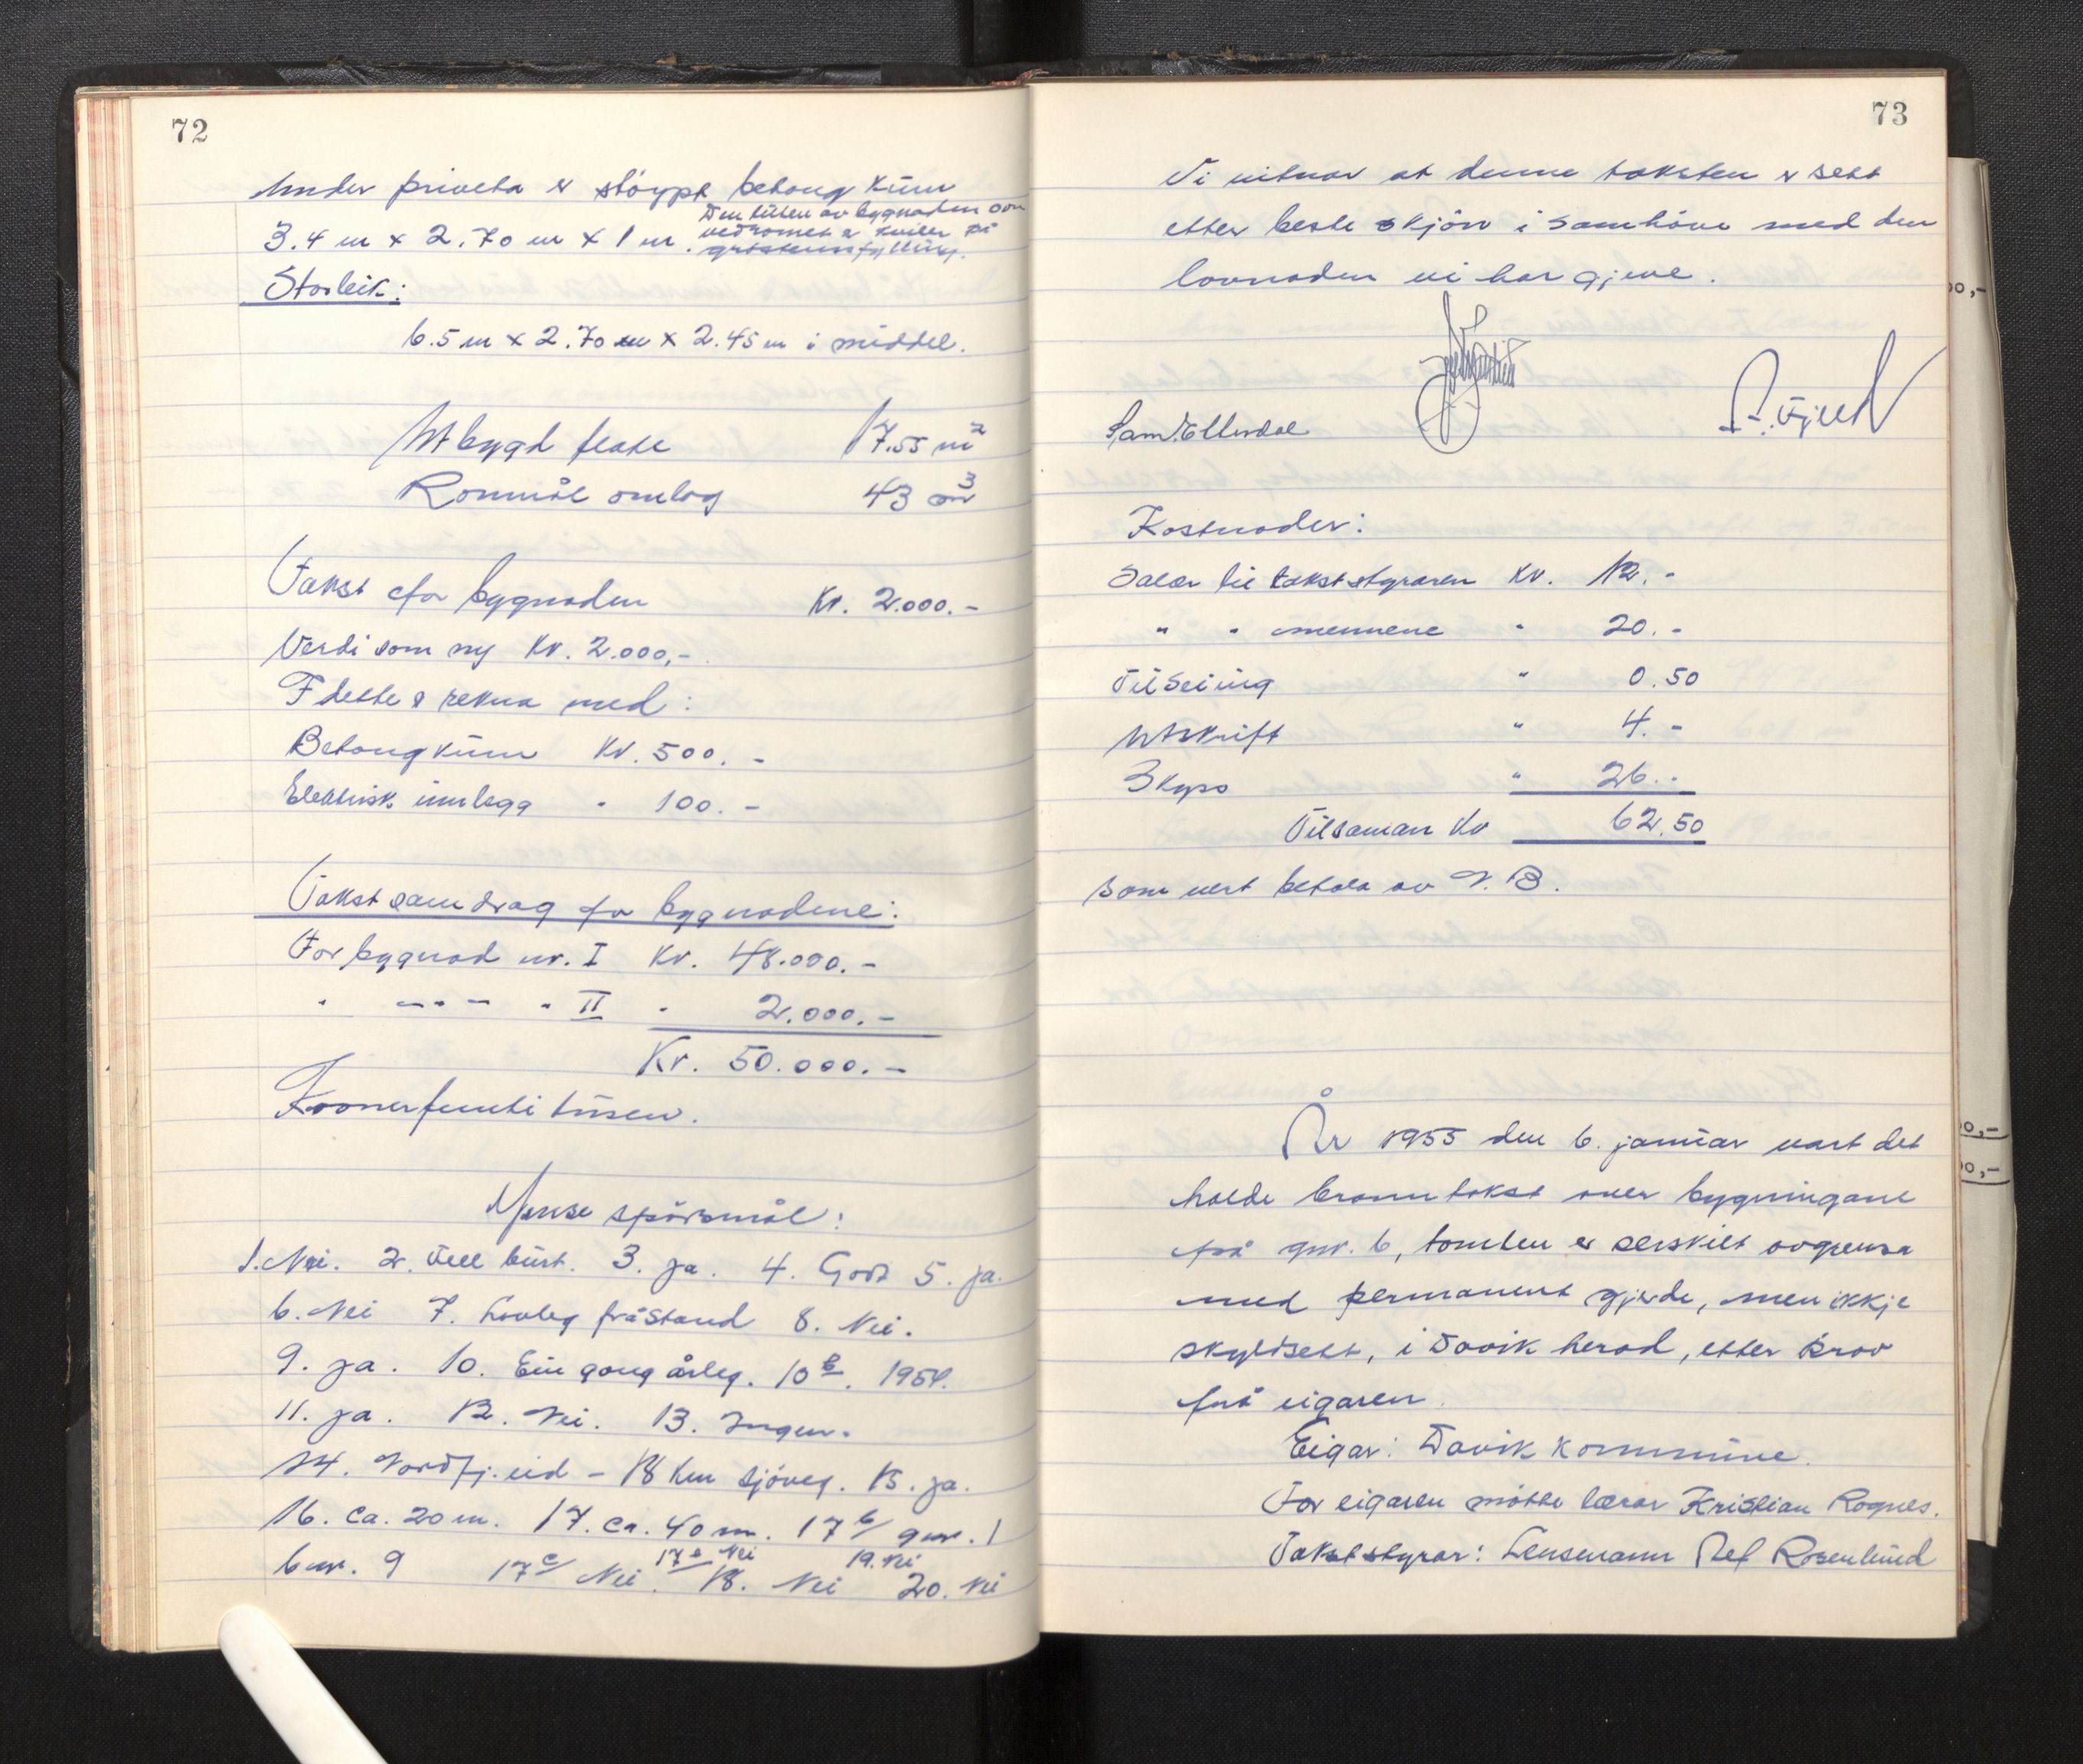 72
Under priveta er støypt betong kum
3.4 m x 2.70 m x 1 m. Den luten av bygnaden som
vedromet er kviler på
gråsteinsfylling.
Storleik:
6.5 m x 2.70 m x 2.45 m i middel.
Utbygd flate 17.55 m²
Rommål omlag 43 m³
Takst for bygnaden Kr. 2.000.-
Verdi som ny Kr. 2.000,-
I dette er rekna med:
Betongkum Kr. 500.-
Elektrisk innlegg " 100.-
Takst samdrag for bygnadene:
For bygnad nr. I Kr. 48.000.-
" -"- " II " 2.000.-
Kr. 50.000.-
Kronerfemtitusen.
Ymse spörsmål:
1. Nei. 2. Vell burt. 3. ja. 4. God 5. ja.
6. Nei 7. Lovleg fråstand 8. Nei.
9. ja. 10. Ein gong årleg. 10 b. 1954.
11. ja. 12. Nei. 13. Ingen.
14. Nordfj.eid - 18 km sjöveg. 15. ja.
16. ca. 20 m. 17. ca. 40 m. 17 b/ gnr. 1
bnr. 9 17 c/ Nei. 17 d Nei 18. Nei 19. Nei 20. Nei
73
Vi vitnar at denne taksten er sett
etter beste skjön i samhöve med den
lovnaden vi har gjeve.
Sam. Ellerdal
Kostnader:
Salær til takststyraren Kr. 12.-
" " mennene " 20.-
Tilseiing " 0.50
Utskrift " 4.-
Skyss " 26.-
Tilsaman Kr 62.50
som vert betala av N. B.
År 1955 den 6. januar vart det
halde branntakst over bygningane
på gnr. 6, tomten er serskilt avgrensa
med permanent gjerde, men ikkje
skyldsett, i Davik herad, etter krav
frå eigaren.
Eigar: Davik kommune.
For eigaren møtte lærar Kristian Rognes.
Takststyrar: Lensmann Alf Rosenlund